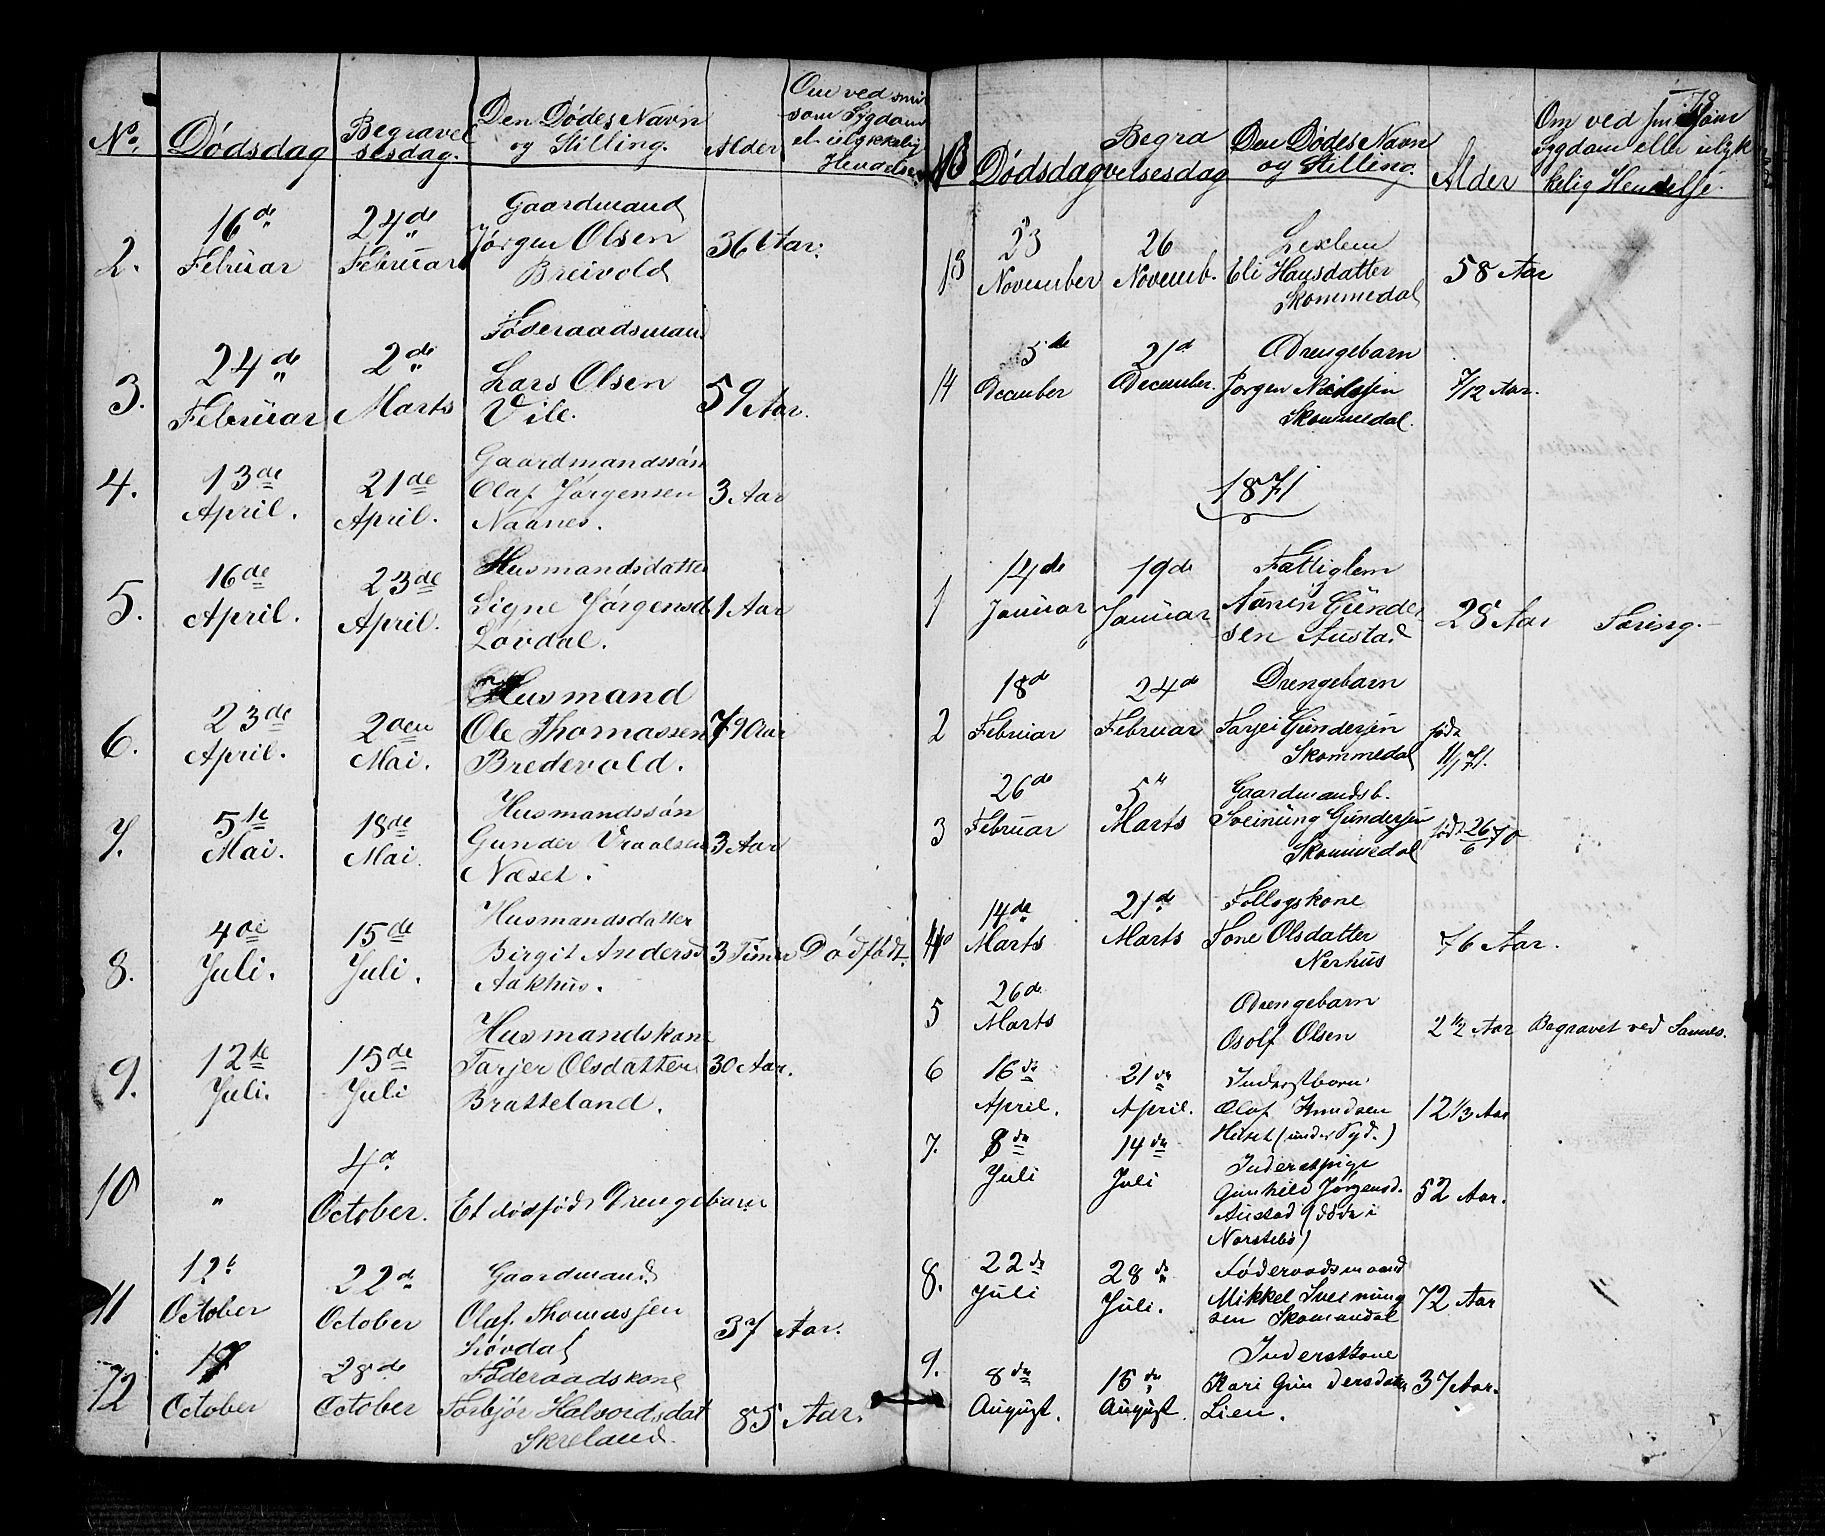 No. Dödsdag Begravel
sesdag. Den Dödes Navn
og Stilling. Alder Om ved smit
som Sygdom
el. ulykkelig
Hendelse
2. 16de Februar 24de Februar Gaardmand
Jörgen Olsen
Breivold 36 Aar.
3. 24de Februar 2de Marts Föderaadsmand
Lars Olsen
Vile. 59 Aar.
4. 13de April. 21de April. Gaardmandssön
Olaf Jörgensen
Naanes. 3 Aar
5. 16de April. 23de April. Husmandsdatter
Signe Jörgensd.
Lovdal. 1 Aar
6. 23de April. 2den Mai. Husmand
Ole Thomassen
Bredevold. 79 Aar
7. 5te Mai. 18de Mai. Husmandssön
Gunder Vraalsen
Næset. 3 Aar
8. 4de Juli. 15de Juli. Husmandsdatter
Birgit Andersd
Aakhus. 3 Timer Dödfödt.
9. 12te Juli. 15de Juli Husmandskone
Tarjer Olsdatter
Bratteland. 30 Aar.
10 " 4d October. Et dödfödt Drengebarn
11 12t October 22de October Gaardmand
Olaf Thomassen
Lövdal 37 Aar.
12 October 28de October Föderaadskone
Torbjör Halvordsdat
Skreland 85 Aar.
Dödsdag Begra
velsesdag Den Dödes Navn
og Stilling. Alder Om ved smitsom
Sygdom eller ulyk
kelig Hendelse.
13 23 November 26 Novemb. Lexlem
Eli Hansdatter
Skommedal 58 Aar
14 5de December 21d December. Drengebarn
Jörgen Nielssen
Skommedal. 7/12 Aar.
1871
1 14de Januar 19de Januar Fattiglem
Aanen Gunder
sen Austad 28 Aar Tæring.
2 18de Februar 24de Februar Drengebarn
Tarjei Gundersen
Skommedal födt
11/1 71.
3 26de Februar 5" Marts Gaardmandsb.
Sveinung Gundersen
Skommedal födt 26/6 70
4 14de Marts 21de Marts Follogskone
Tone Olsdatter
Nerhus 76 Aar.
5 26de Marts Drengebarn
Osolf Olsen 2 1/2 Aar Begravet ved Sannes.
6 16de April. 21de April. Inderstbarn
Olaf Knudsen
Huset (under Tyd.) 12 1/3 Aar
7. 8de Juli 14de Juli Inderstpige
Gunhild Jörgensd.
Austad (döde i
Norstebö) 52 Aar.
8. 22de Juli 28de Juli. Föderaadsmand
Mikkel Sveinung
sen Skomedal 72 Aar
9. 8de August. 15de August. Inderstkone
Kari Gundersdatter
Lien. 37 Aar.